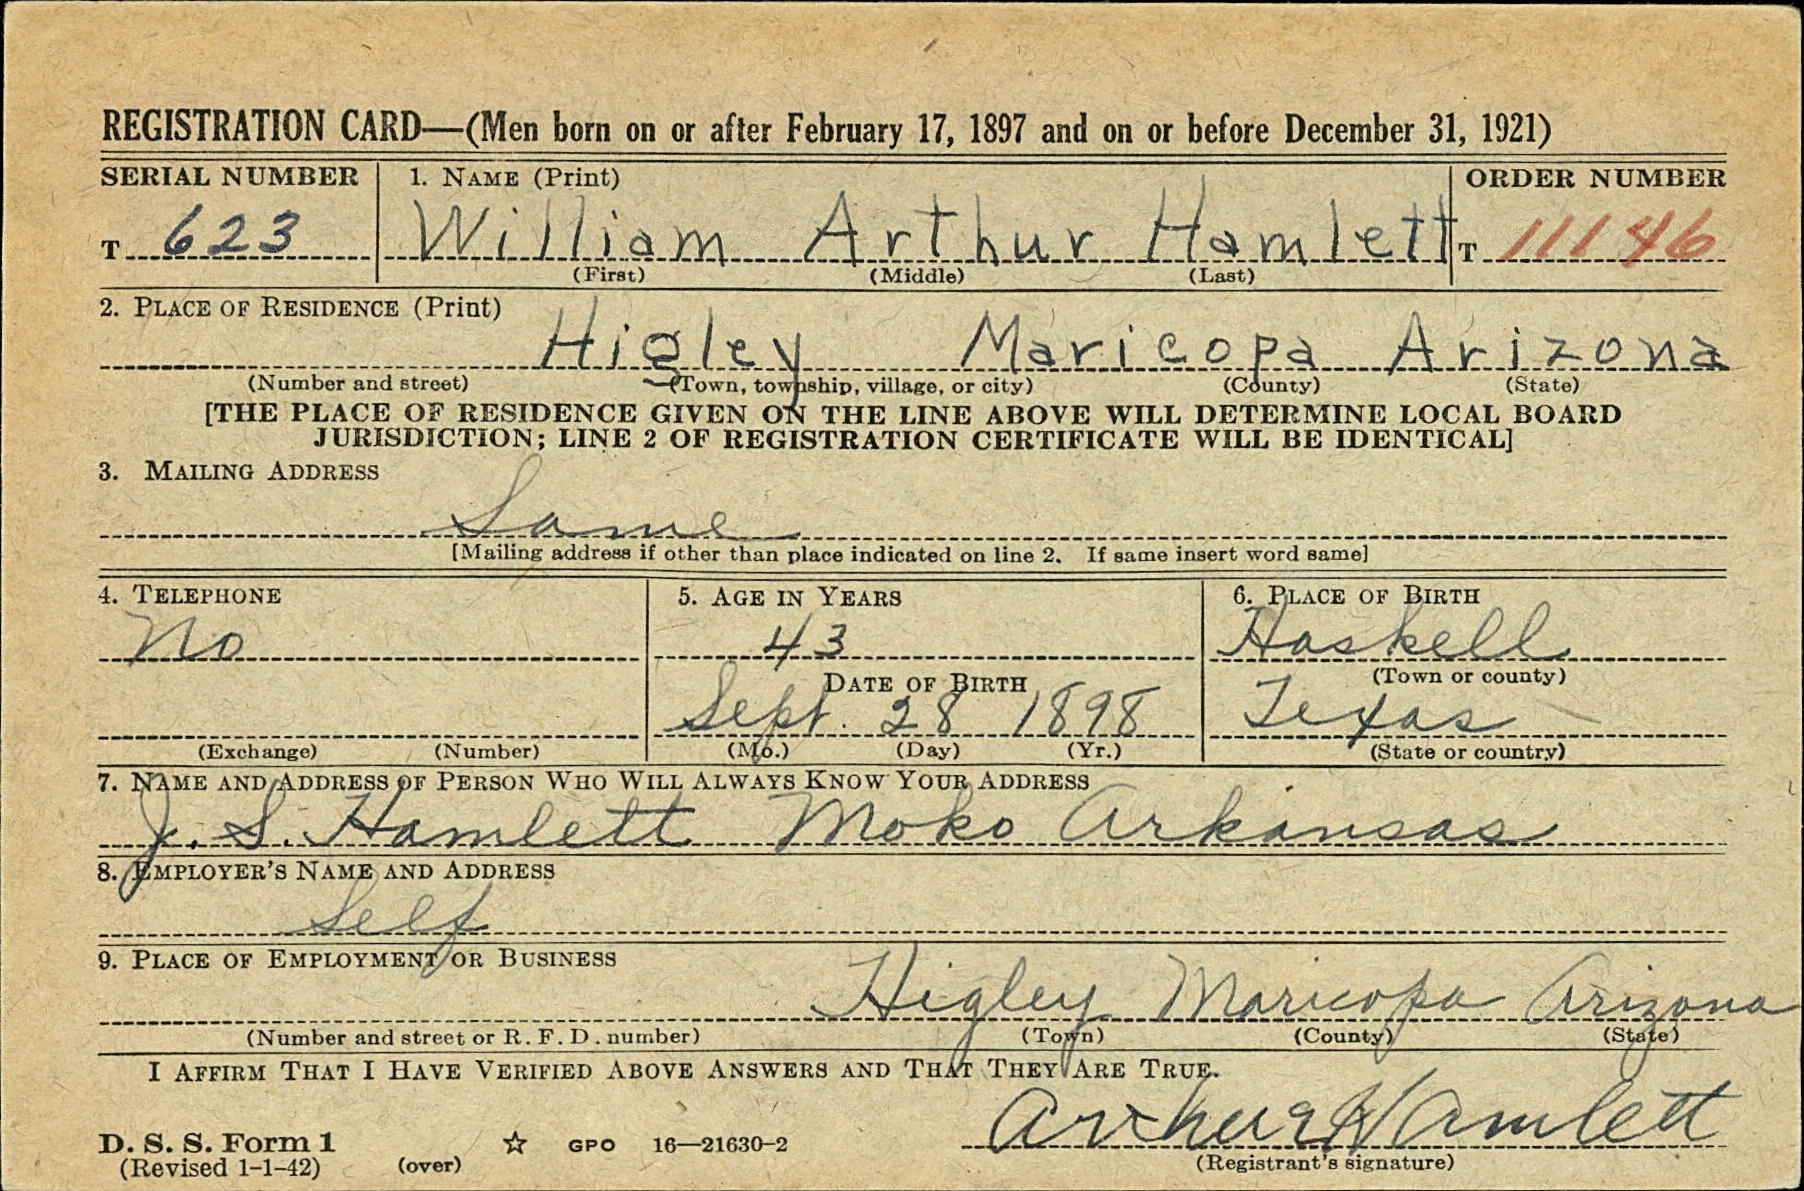 REGISTRATION CARD—(Men born on or after February 17, 1897 and on or before December 31, 1921)
SERIAL NUMBER 1. NAME (Print) ORDER NUMBER
T 623 William Arthur Hamlett T 11146
(First) (Middle) (Last)
2. PLACE OF RESIDENCE (Print)
Higley Maricopa Arizona
(Number and street) (Town, township, village, or city) (County) (State)
[THE PLACE OF RESIDENCE GIVEN ON THE LINE ABOVE WILL DETERMINE LOCAL BOARD
JURISDICTION; LINE 2 OF REGISTRATION CERTIFICATE WILL BE IDENTICAL]
3. MAILING ADDRESS
Same
[Mailing address if other than place indicated on line 2. If same insert word same]
4. TELEPHONE 5. AGE IN YEARS 6. PLACE OF BIRTH
No 43 Haskell
DATE OF BIRTH (Town or county)
Sept. 28 1898 Texas
(Exchange) (Number) (Mo.) (Day) (Yr.) (State or country)
7. NAME AND ADDRESS OF PERSON WHO WILL ALWAYS KNOW YOUR ADDRESS
J. S. Hamlett Moko Arkansas
8. EMPLOYER'S NAME AND ADDRESS
Self
9. PLACE OF EMPLOYMENT OR BUSINESS
Higley Maricopa Arizona
(Number and street or R. F. D. number) (Town) (County) (State)
I AFFIRM THAT I HAVE VERIFIED ABOVE ANSWERS AND THAT THEY ARE TRUE.
Arthur Hamlett
D. S. S. Form 1 ☆ GPO 16—21630-2
(Revised 1-1-42) (over) (Registrant's signature)